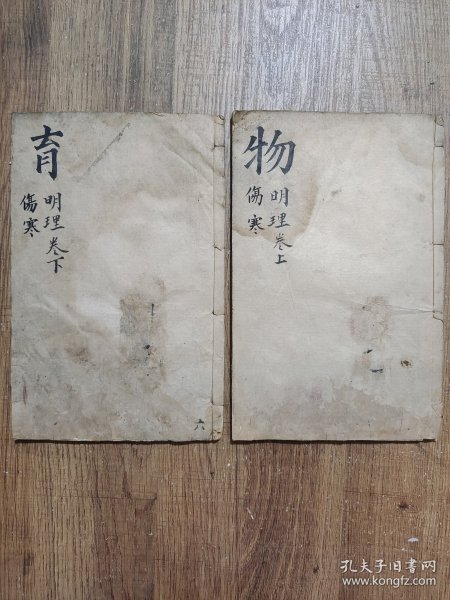 物
明理卷上
傷寒
育
明理卷下
傷寒
六
孔夫子旧书网
www.kongfz.com